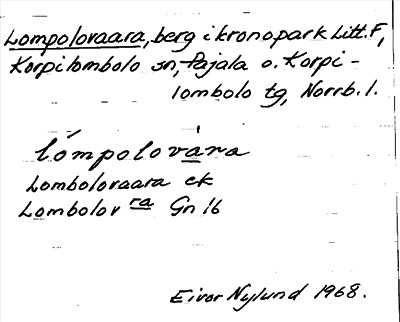 Lompolovaara, berg i kronopark Litt. F,
Korpilombolo sn, Pajala o. Korpi-
lombolo tg, Norrb. l.
lómpolovàra
Lomboloraara ek
Lombolov ra Gn 16
Eivor Nylund 1968.